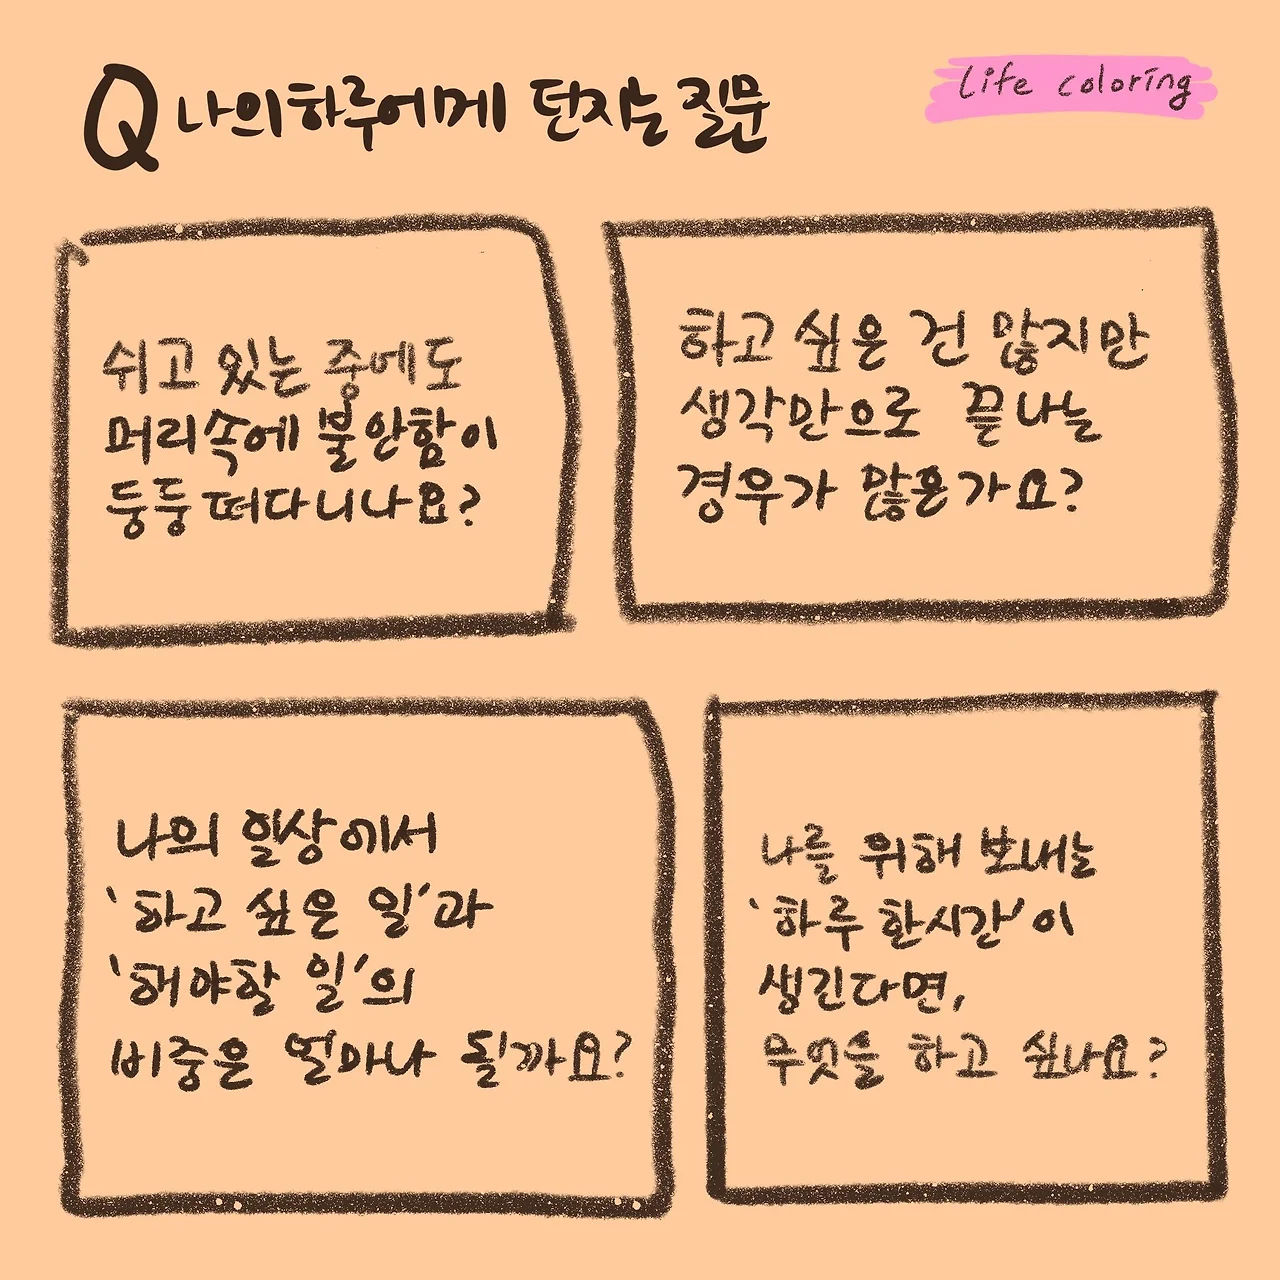 Q 나의하루에게 던지는 질문
Life coloring
쉬고 있는 중에도
머리속에 불안함이
둥둥 떠다니나요?
하고 싶은 건 많지만
생각만으로 끝나는
경우가 많은가요?
나의 일상에서
'하고 싶은 일'과
'해야할 일'의
비중은 얼마나 될까요?
나를 위해 보내는
'하루 한시간'이
생긴다면,
무엇을 하고 싶나요?